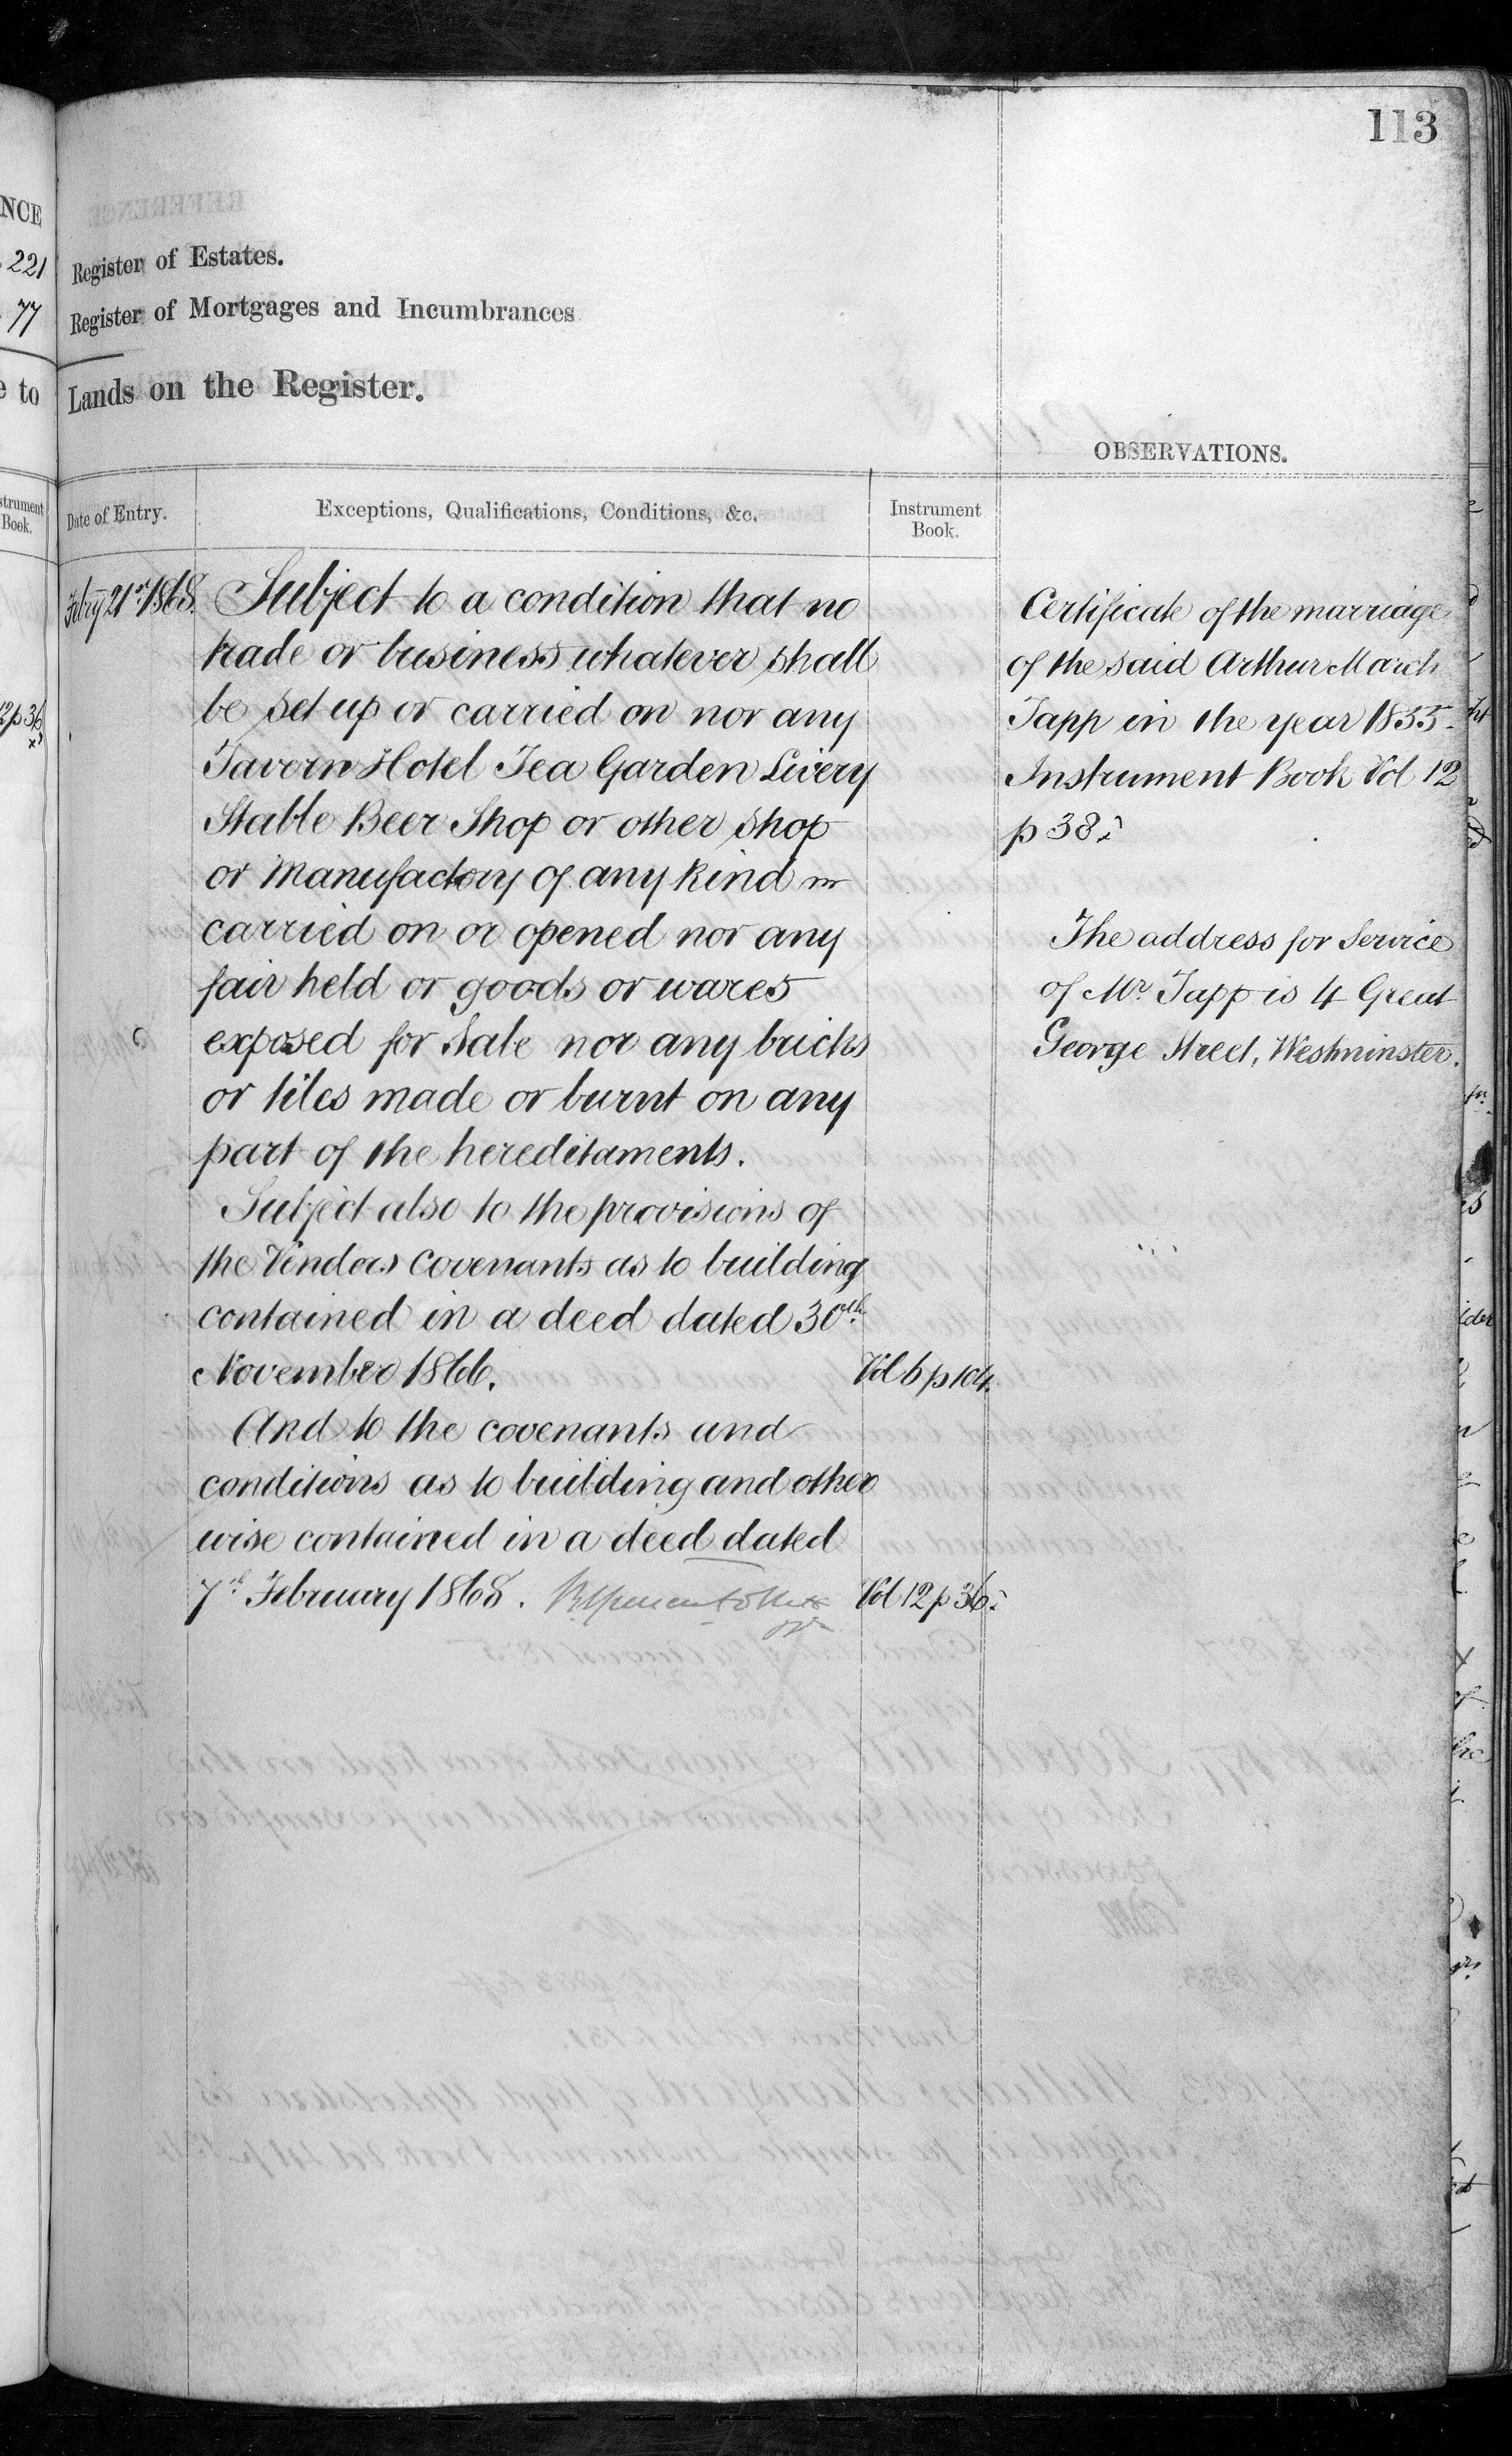 113
NCE
221
77
e to
strument
Book.
12 p 36
Register of Estates.
Register of Mortgages and Incumbrances
Lands on the Register.
OBSERVATIONS.
Date of Entry.
Exceptions, Qualifications, Conditions, &c.
Instrument
Book.
Febry 21st 1868.
Subject to a condition that no
trade or business whatever shall
be set up or carried on nor any
Tavern Hotel Tea Garden Livery
Stable Beer Shop or other shop
or Manufactory of any kind
carried on or opened nor any
fair held or goods or wares
exposed for sale nor any bricks
or tiles made or burnt on any
part of the hereditaments.
Subject also to the provisions of
the Vendors covenants as to building
contained in a deed dated 30th
November 1866.
Vol 6 p 104.
And to the covenants and
conditions as to building and other
wise contained in a deed dated
7th February 1868.
Vol 12 p 36.
Certificate of the marriage
of the said Arthur March
Tapp in the year 1855.
Instrument Book Vol 12
p 38.
The address for Service
of Mr Tapp is 4 Great
George Street, Westminster.